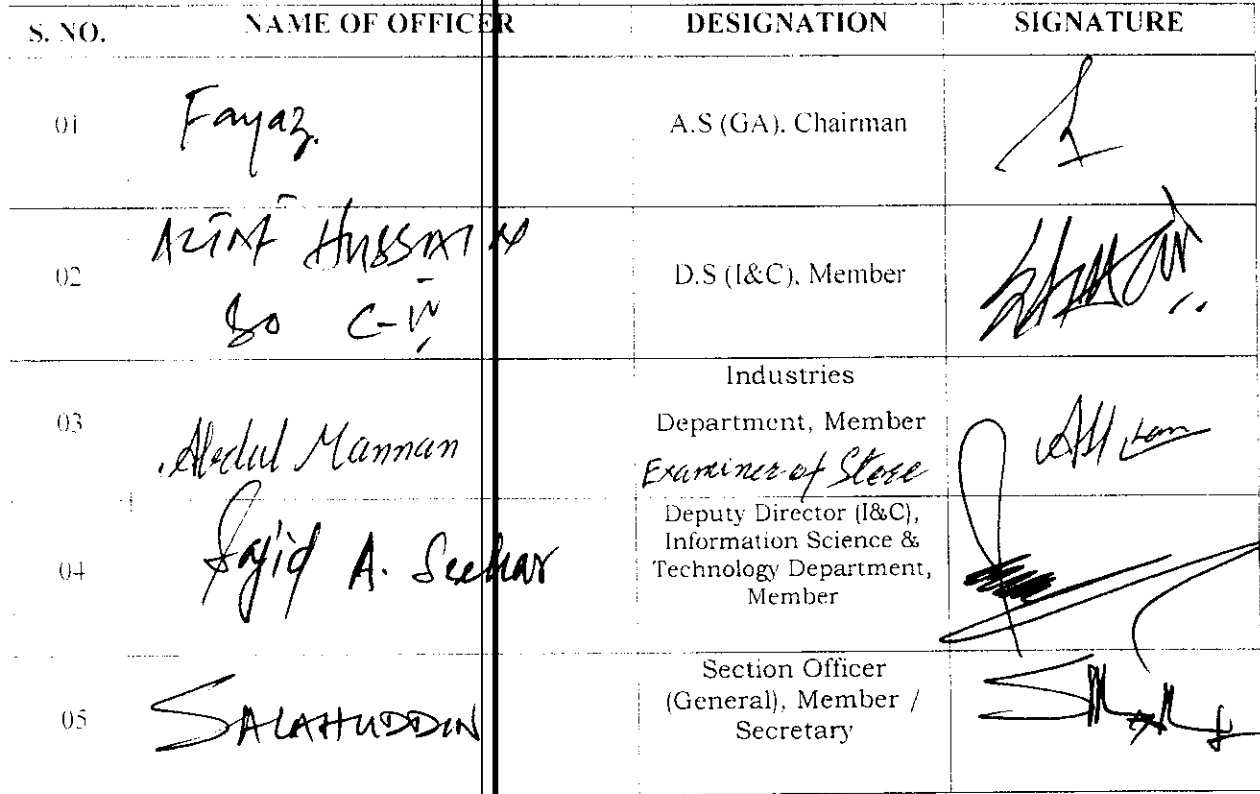 S. NO. NAME OF OFFICER DESIGNATION SIGNATURE
01 Fayaz. A.S (GA). Chairman
02 HUSSAIN D.S (I&C), Member
SO C-IV
03 Abdul Mannan Industries
Department, Member
Examiner of Store
04 Sajid A. Deputy Director (I&C),
Information Science &
Technology Department,
Member
05 SALAHUDDIN Section Officer
(General), Member /
Secretary